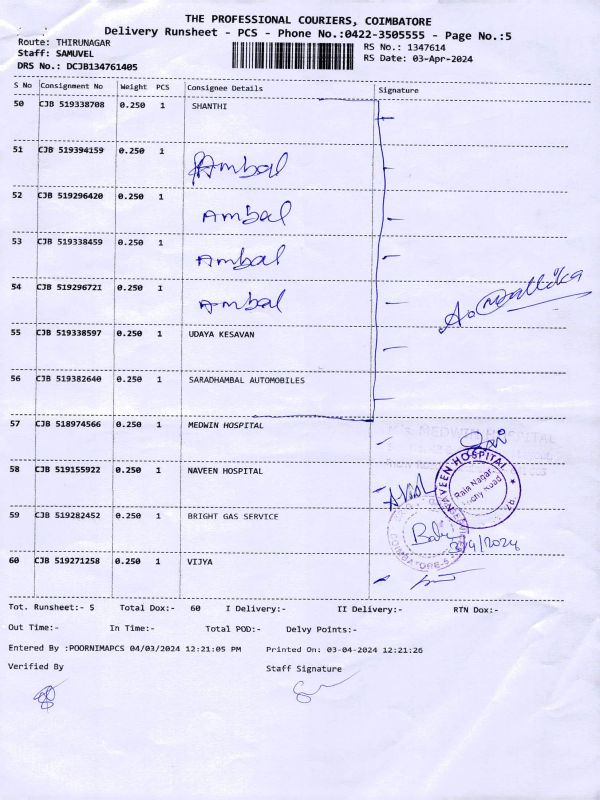 THE PROFESSIONAL COURIERS, COIMBATORE
Delivery Runsheet - PCS - Phone No.:0422-3505555 - Page No.:5
Route: THIRUNAGAR
RS No.: 1347614
Staff: SAMUVEL
RS Date: 03-Apr-2024
DRS No.: DCJB134761405
S No Consignment No Weight PCS Consignee Details Signature
50 CJB 519338708 0.250 1 SHANTHI
51 CJB 519394159 0.250 1 Ambal
52 CJB 519296420 0.250 1 Ambal
53 CJB 519338459 0.250 1 Ambal
54 CJB 519296721 0.250 1 Ambal
55 CJB 519338597 0.250 1 UDAYA KESAVAN
56 CJB 519382640 0.250 1 SARADHAMBAL AUTOMOBILES
57 CJB 518974566 0.250 1 MEDWIN HOSPITAL
M/s. MEDWIN HOSPITAL
58 CJB 519155922 0.250 1 NAVEEN HOSPITAL
NAVEEN HOSPITAL
Raja Nagar,
59 CJB 519282452 0.250 1 BRIGHT GAS SERVICE
COIMBATORE-5
3/4/2024
60 CJB 519271258 0.250 1 VIJYA
Tot. Runsheet:- 5 Total Dox:- 60 I Delivery:- II Delivery:- RTN Dox:-
Out Time:- In Time:- Total POD:- Delvy Points:-
Entered By :POORNIMAPCS 04/03/2024 12:21:05 PM Printed On: 03-04-2024 12:21:26
Verified By Staff Signature